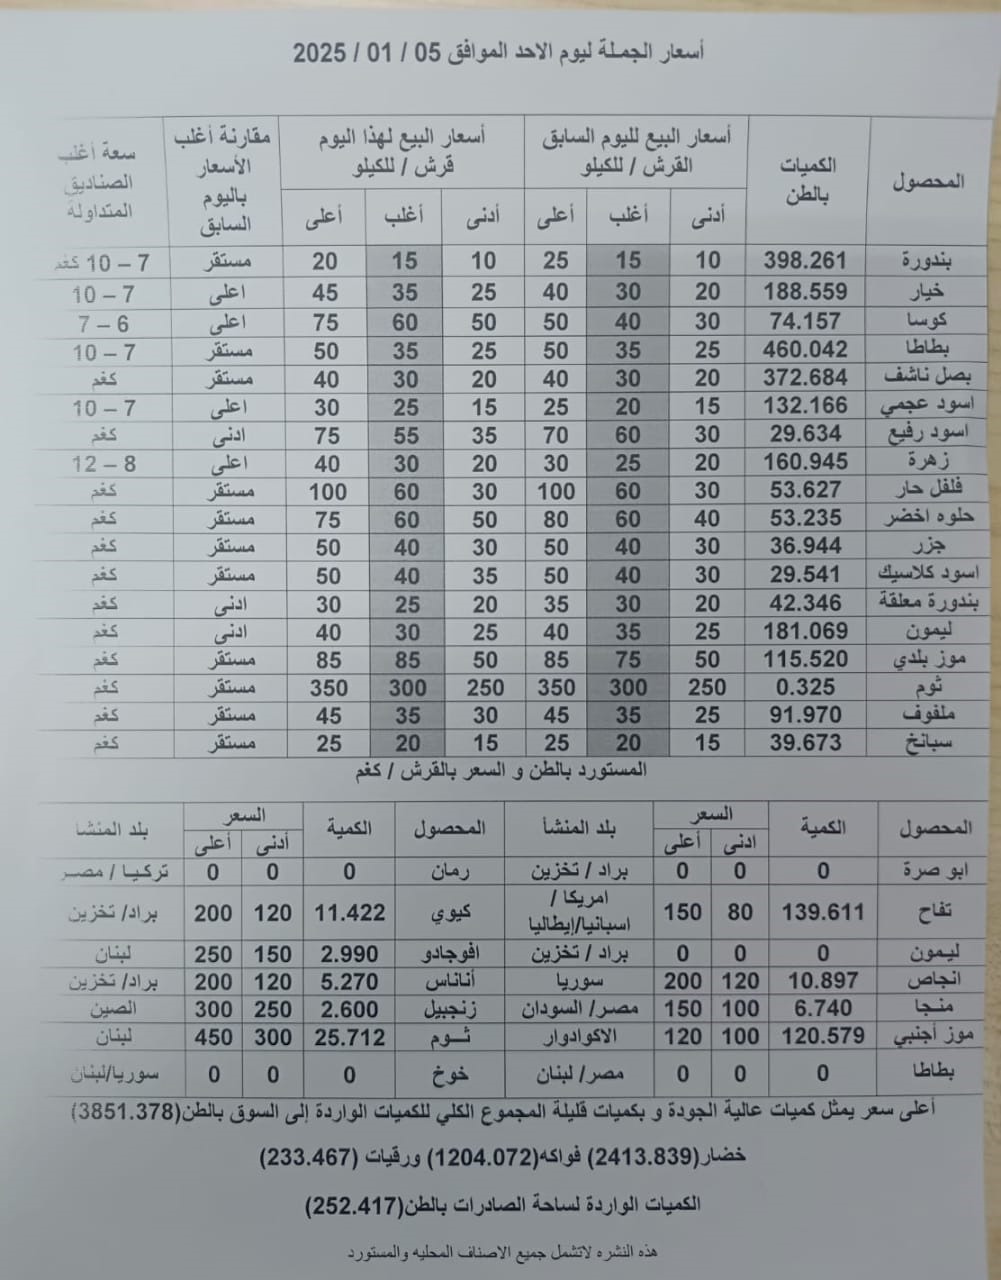 أسعار الجملة ليوم الاحد الموافق 05 / 01 / 2025
المحصول | الكميات بالطن | أسعار البيع لليوم السابق القرش / للكيلو | أسعار البيع لهذا اليوم قرش / للكيلو | مقارنة أغلب الأسعار باليوم السابق | سعة أغلب الصناديق المتداولة
أدنى | أغلب | أعلى | أدنى | أغلب | أعلى
بندورة | 398.261 | 10 | 15 | 25 | 10 | 15 | 20 | مستقر | 7 – 10 كغم
خيار | 188.559 | 20 | 30 | 40 | 25 | 35 | 45 | اعلى | 7 – 10
كوسا | 74.157 | 30 | 40 | 50 | 50 | 60 | 75 | اعلى | 6 – 7
بطاطا | 460.042 | 25 | 35 | 50 | 25 | 35 | 50 | مستقر | 7 – 10
بصل ناشف | 372.684 | 20 | 30 | 40 | 20 | 30 | 40 | مستقر | كغم
اسود عجمي | 132.166 | 15 | 20 | 25 | 15 | 25 | 30 | اعلى | 7 – 10
اسود رفيع | 29.634 | 30 | 60 | 70 | 35 | 55 | 75 | ادنى | كغم
زهرة | 160.945 | 20 | 25 | 30 | 20 | 30 | 40 | اعلى | 8 – 12
فلفل حار | 53.627 | 30 | 60 | 100 | 30 | 60 | 100 | مستقر | كغم
حلوه اخضر | 53.235 | 40 | 60 | 80 | 50 | 60 | 75 | مستقر | كغم
جزر | 36.944 | 30 | 40 | 50 | 30 | 40 | 50 | مستقر | كغم
اسود كلاسيك | 29.541 | 30 | 40 | 50 | 35 | 40 | 50 | مستقر | كغم
بندورة معلقة | 42.346 | 20 | 30 | 35 | 20 | 25 | 30 | ادنى | كغم
ليمون | 181.069 | 25 | 35 | 40 | 25 | 30 | 40 | ادنى | كغم
موز بلدي | 115.520 | 50 | 75 | 85 | 50 | 85 | 85 | مستقر | كغم
ثوم | 0.325 | 250 | 300 | 350 | 250 | 300 | 350 | مستقر | كغم
ملفوف | 91.970 | 25 | 35 | 45 | 30 | 35 | 45 | مستقر | كغم
سبانخ | 39.673 | 15 | 20 | 25 | 15 | 20 | 25 | مستقر | كغم
المستورد بالطن و السعر بالقرش / كغم
المحصول | الكمية | السعر | بلد المنشأ | المحصول | الكمية | السعر | بلد المنشأ
ادنى | أعلى | أدنى | أعلى
ابو صرة | 0 | 0 | 0 | براد / تخزين | رمان | 0 | 0 | 0 | تركيا / مصر
تفاح | 139.611 | 80 | 150 | امريكا / اسبانيا/إيطاليا | كيوي | 11.422 | 120 | 200 | براد/ تخزين
ليمون | 0 | 0 | 0 | براد / تخزين | افوجادو | 2.990 | 150 | 250 | لبنان
انجاص | 10.897 | 120 | 200 | سوريا | أناناس | 5.270 | 120 | 200 | براد/ تخزين
منجا | 6.740 | 100 | 150 | مصر/ السودان | زنجبيل | 2.600 | 250 | 300 | الصين
موز أجنبي | 120.579 | 100 | 120 | الاكوادوار | ثوم | 25.712 | 300 | 450 | لبنان
بطاطا | 0 | 0 | 0 | مصر/ لبنان | خوخ | 0 | 0 | 0 | سوريا/لبنان
أعلى سعر يمثل كميات عالية الجودة و بكميات قليلة المجموع الكلي للكميات الواردة إلى السوق بالطن(3851.378)
خضار(2413.839) فواكه(1204.072) ورقيات (233.467)
الكميات الواردة لساحة الصادرات بالطن(252.417)
هذه النشره لاتشمل جميع الاصناف المحليه والمستورد